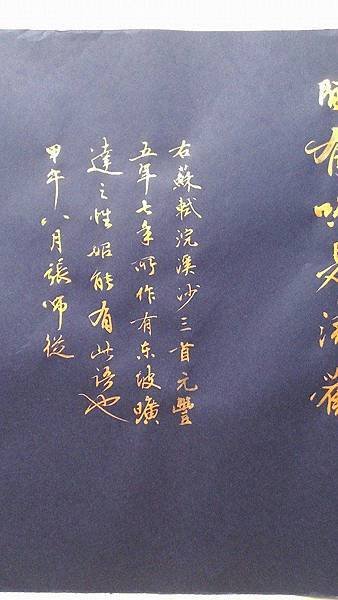 間有味是清歡
右蘇軾浣溪沙三首元豐
五年七年所作有东坡曠
達之性始能有此語也
甲午八月張師從